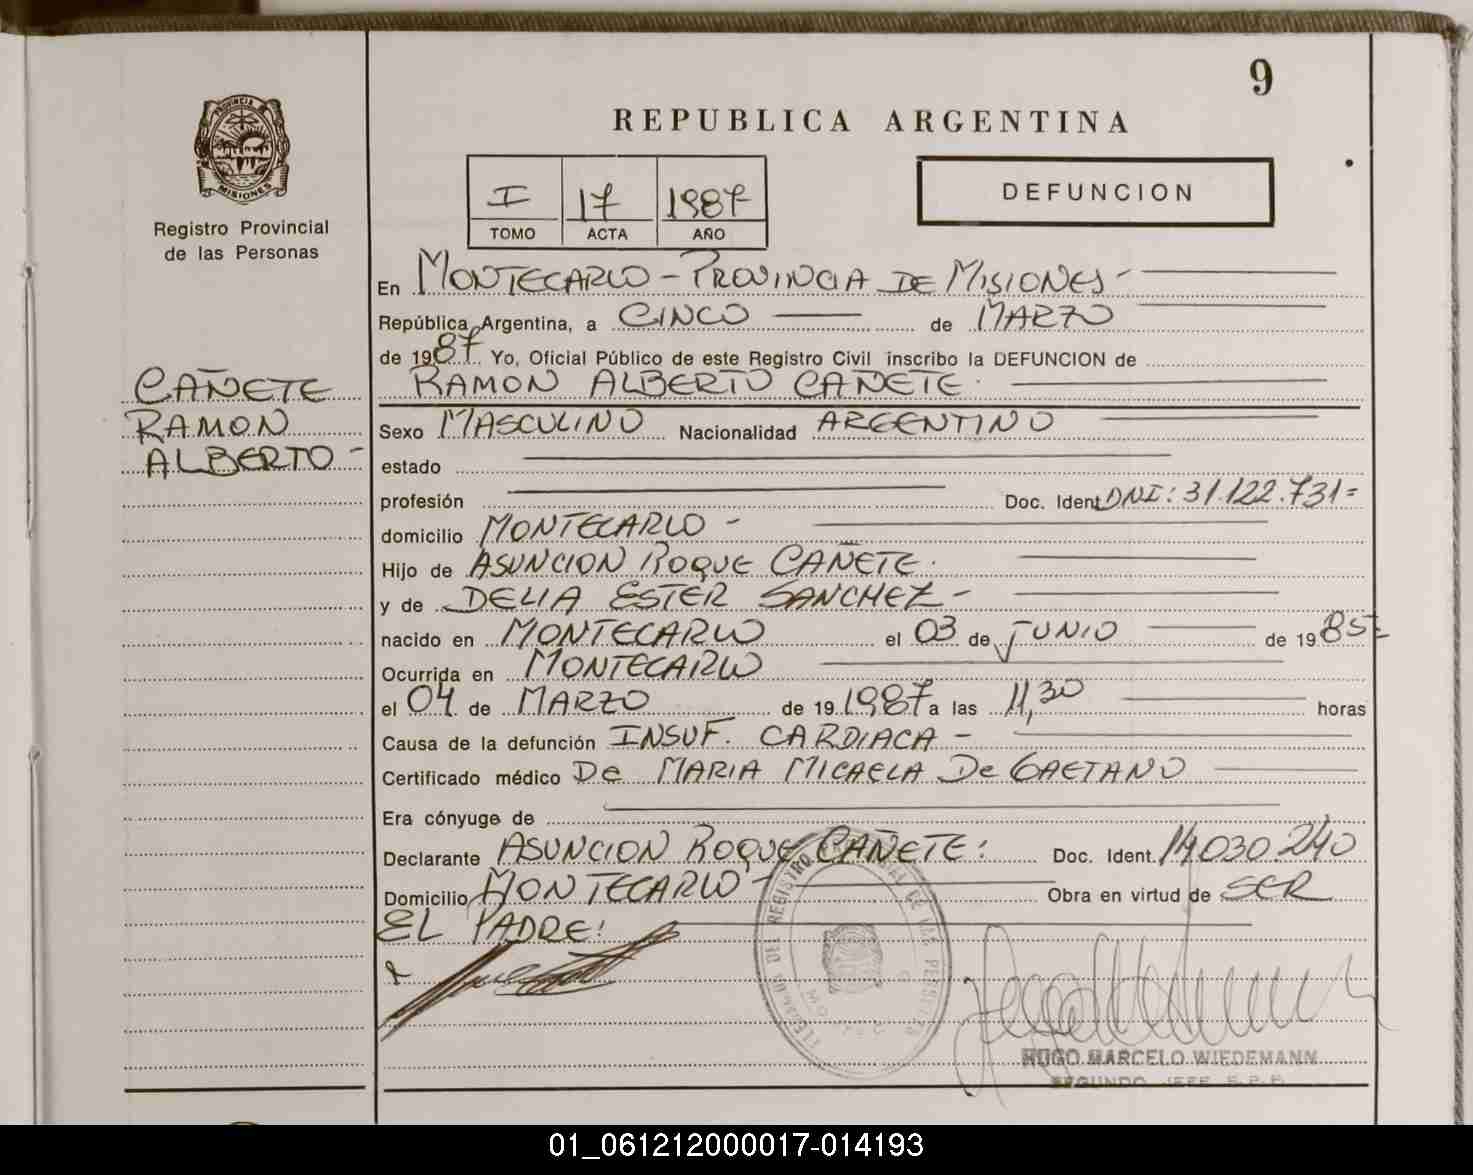 9
REPUBLICA ARGENTINA
PROVINCIA
MISIONES
Registro Provincial
de las Personas
I 17 1987
TOMO ACTA AÑO
DEFUNCION
En MONTECARLO - PROVINCIA DE MISIONES -
República Argentina, a CINCO de MARZO
de 1987 Yo, Oficial Público de este Registro Civil inscribo la DEFUNCION de
RAMON ALBERTO CAÑETE
CAÑETE
RAMON
ALBERTO -
Sexo MASCULINO Nacionalidad ARGENTINO
estado
profesión Doc. Ident. DNI: 31.122.731=
domicilio MONTECARLO -
Hijo de ASUNCION ROQUE CAÑETE.
y de DELIA ESTER SANCHEZ -
nacido en MONTECARLO el 03 de JUNIO de 1985=
Ocurrida en MONTECARLO
el 04 de MARZO de 19 1987 a las 11,30 horas
Causa de la defunción INSUF. CARDIACA -
Certificado médico De MARIA MICAELA De GAETANO
Era cónyuge de
Declarante ASUNCION ROQUE CAÑETE: Doc. Ident. 14.030.240
Domicilio MONTECARLO - Obra en virtud de SER
EL PADRE:
HUGO MARCELO WIEDEMANN
SEGUNDO JEFE R.P.P.
01_061212000017-014193